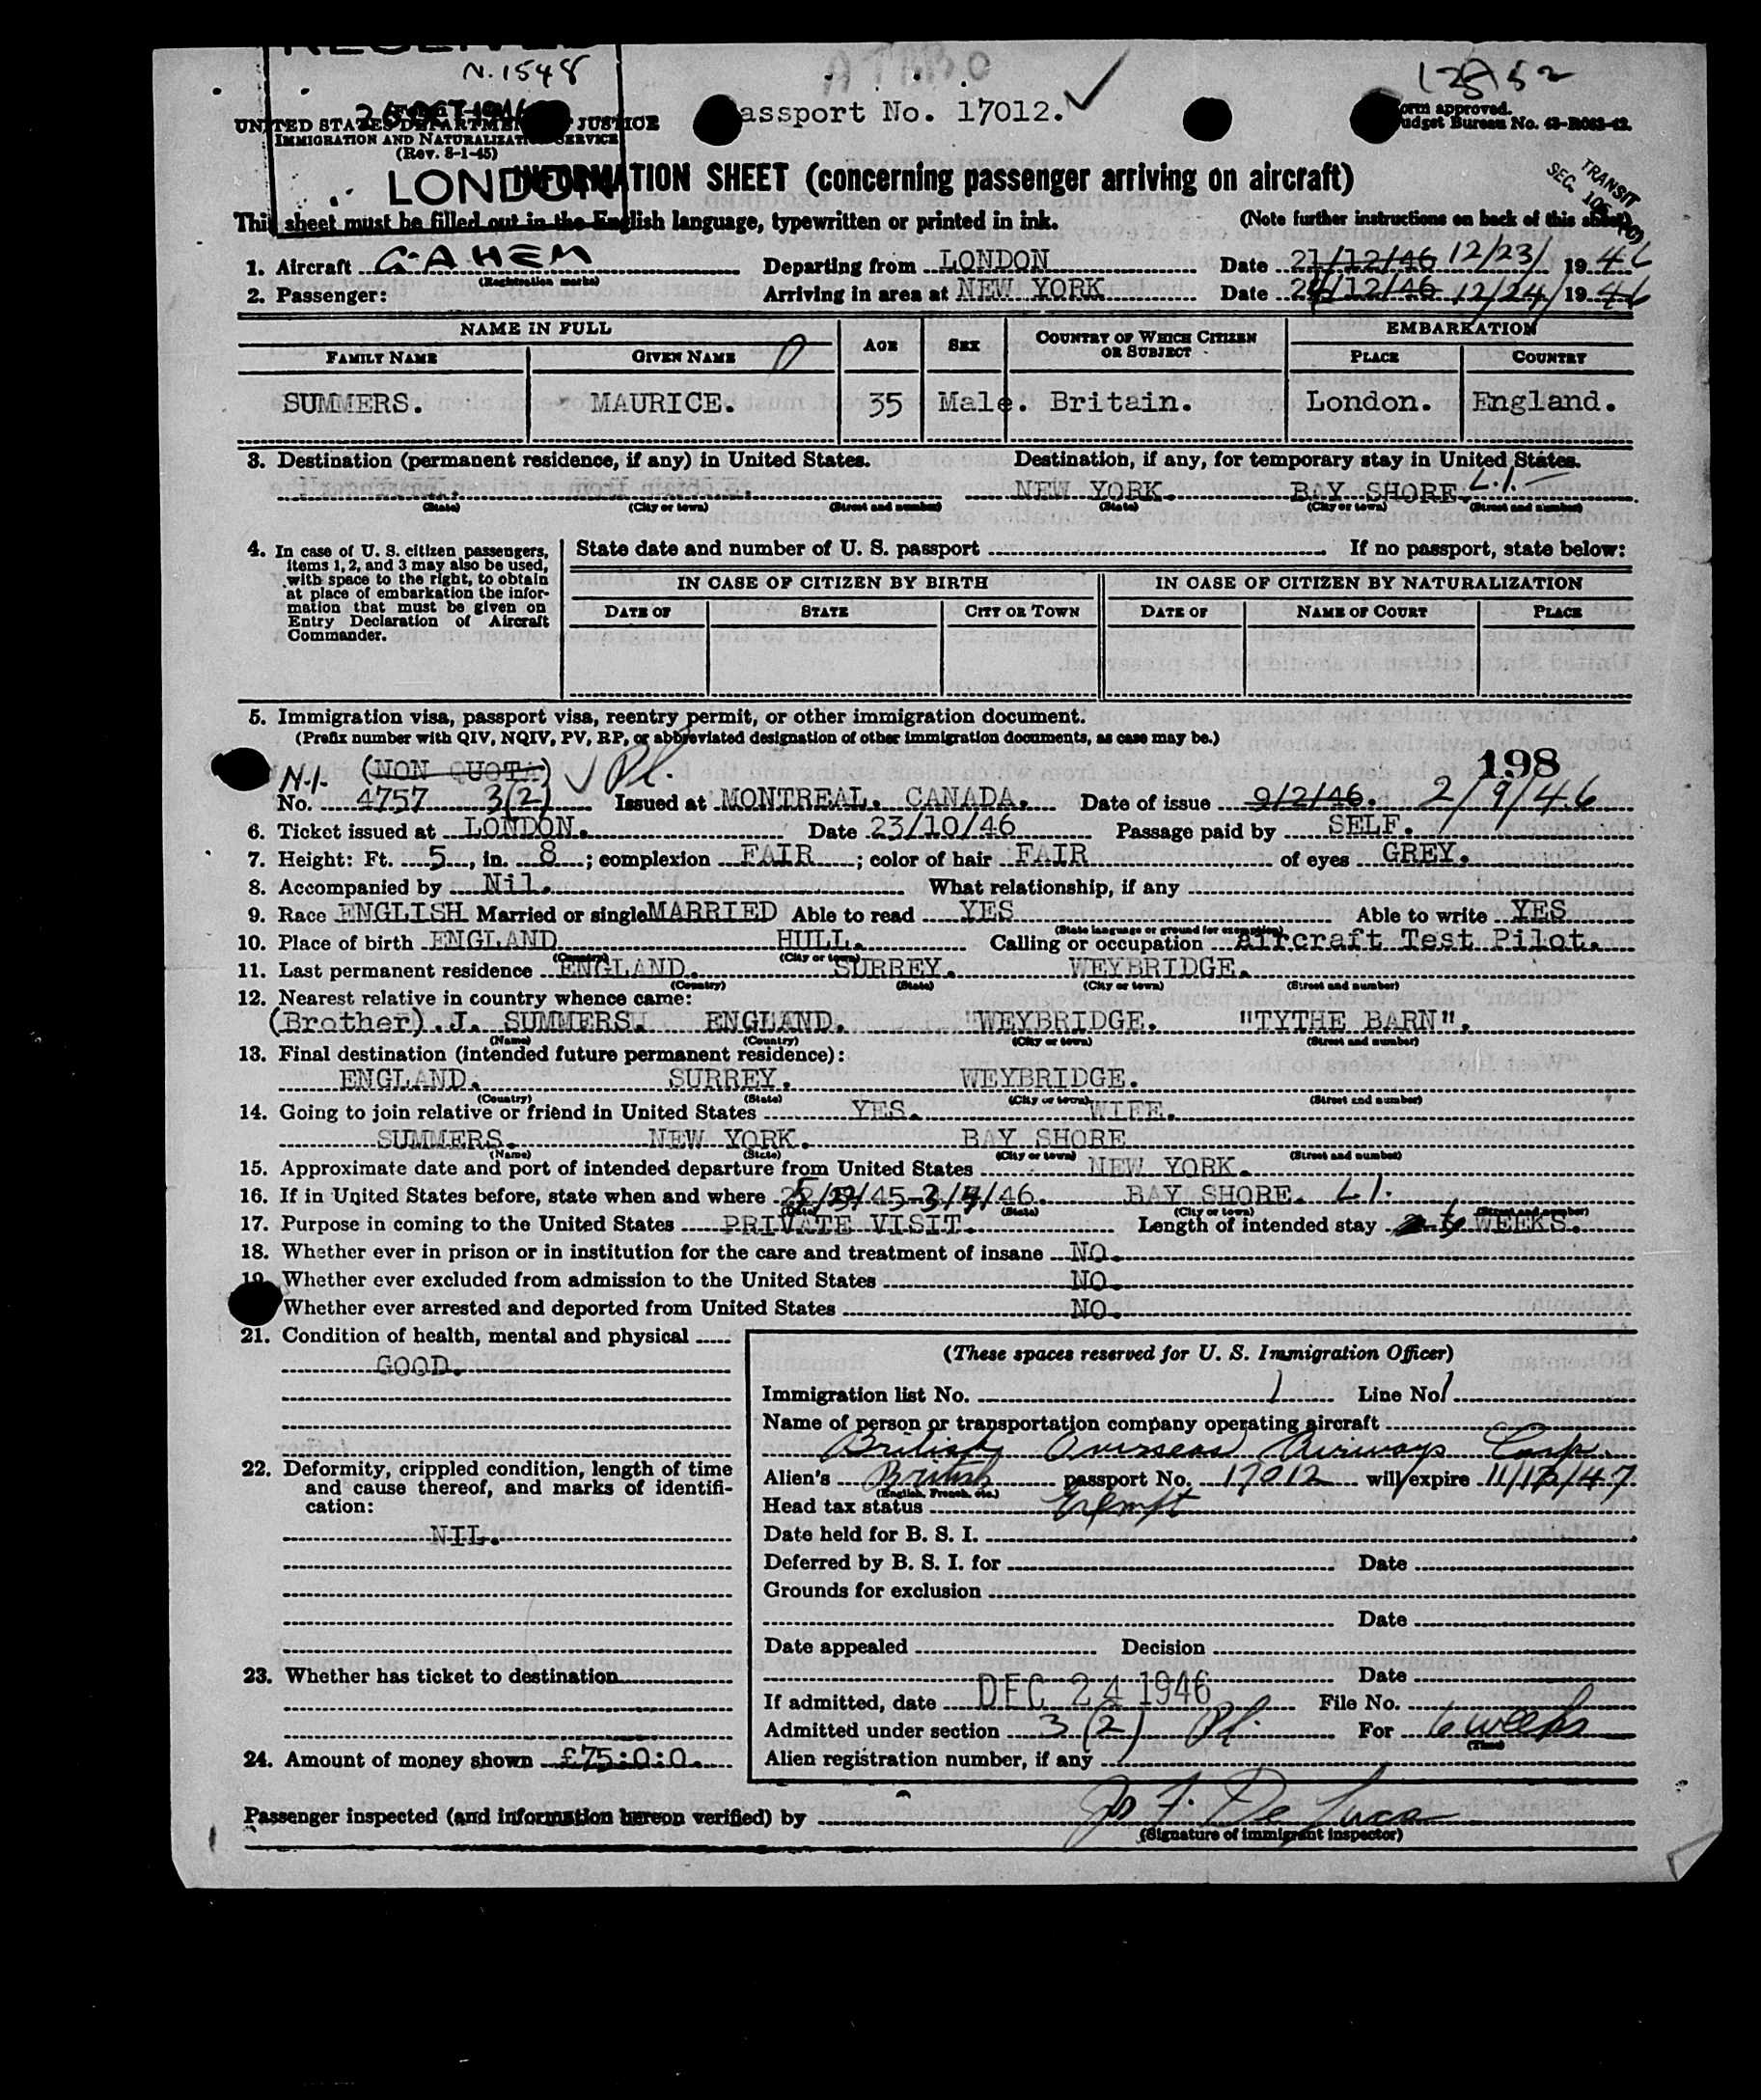 N. 1548
12852
Passport No. 17012.
26 OCT 1946
Form approved.
UNITED STATES DEPARTMENT OF JUSTICE
Budget Bureau No. 43-R083-42.
IMMIGRATION AND NATURALIZATION SERVICE
(Rev. 8-1-45)
TRANSIT
SEC.
LONDON
INFORMATION SHEET (concerning passenger arriving on aircraft)
This sheet must be filled out in the English language, typewritten or printed in ink. (Note further instructions on back of this sheet)
1. Aircraft G-AHEM Departing from LONDON Date 21/12/46 12/23/ 1946
(Registration marks)
2. Passenger: Arriving in area at NEW YORK Date 24/12/46 12/24/ 1946
NAME IN FULL AGE SEX COUNTRY OF WHICH CITIZEN OR SUBJECT EMBARKATION
FAMILY NAME GIVEN NAME PLACE COUNTRY
SUMMERS. MAURICE. 35 Male. Britain. London. England.
3. Destination (permanent residence, if any) in United States. Destination, if any, for temporary stay in United States.
NEW YORK. BAY SHORE. L.I.
(State) (City or town) (Street and number) (State) (City or town) (Street and number)
4. In case of U. S. citizen passengers, items 1, 2, and 3 may also be used, with space to the right, to obtain at place of embarkation the information that must be given on Entry Declaration of Aircraft Commander.
State date and number of U. S. passport If no passport, state below:
IN CASE OF CITIZEN BY BIRTH IN CASE OF CITIZEN BY NATURALIZATION
DATE OF STATE CITY OR TOWN DATE OF NAME OF COURT PLACE
5. Immigration visa, passport visa, reentry permit, or other immigration document.
(Prefix number with QIV, NQIV, PV, RP, or abbreviated designation of other immigration documents, as case may be.)
198
N.I. (NON QUOTA) Pl.
No. 4757 3(2) Issued at MONTREAL. CANADA. Date of issue 9/2/46. 2/9/46
6. Ticket issued at LONDON. Date 23/10/46 Passage paid by SELF.
7. Height: Ft. 5, in. 8; complexion FAIR; color of hair FAIR of eyes GREY.
8. Accompanied by Nil. What relationship, if any
9. Race ENGLISH Married or single MARRIED Able to read YES Able to write YES
(State language or ground for exemption)
10. Place of birth ENGLAND HULL. Calling or occupation Aircraft Test Pilot.
(Country) (City or town)
11. Last permanent residence ENGLAND. SURREY. WEYBRIDGE.
(Country) (State) (City or town) (Street and number)
12. Nearest relative in country whence came:
(Brother). J. SUMMERS. ENGLAND. WEYBRIDGE. "TYTHE BARN".
(Name) (Country) (City or town) (Street and number)
13. Final destination (intended future permanent residence):
ENGLAND. SURREY. WEYBRIDGE.
(Country) (State) (City or town) (Street and number)
14. Going to join relative or friend in United States YES. WIFE.
SUMMERS. NEW YORK. BAY SHORE
(Name) (State) (City or town) (Street and number)
15. Approximate date and port of intended departure from United States NEW YORK.
16. If in United States before, state when and where BAY SHORE. L.I.
(Date) (State) (City or town) (Street and number)
17. Purpose in coming to the United States PRIVATE VISIT. Length of intended stay 6 WEEKS.
18. Whether ever in prison or in institution for the care and treatment of insane NO.
19. Whether ever excluded from admission to the United States NO.
Whether ever arrested and deported from United States NO.
21. Condition of health, mental and physical
GOOD.
22. Deformity, crippled condition, length of time and cause thereof, and marks of identification:
NIL.
23. Whether has ticket to destination
24. Amount of money shown £75:0:0.
(These spaces reserved for U. S. Immigration Officer)
Immigration list No. 1 Line No. 1
Name of person or transportation company operating aircraft
British Overseas Airways Corp.
Alien's British passport No. 17012 will expire 11/12/47
(English, French, etc.)
Head tax status Exempt
Date held for B. S. I.
Deferred by B. S. I. for Date
Grounds for exclusion
Date
Date appealed Decision
Date
If admitted, date DEC 24 1946 File No.
Admitted under section 3 (2) Pl. For 6 weeks
(Time)
Alien registration number, if any
Passenger inspected (and information hereon verified) by Jos F. De Luca
(Signature of immigrant inspector)